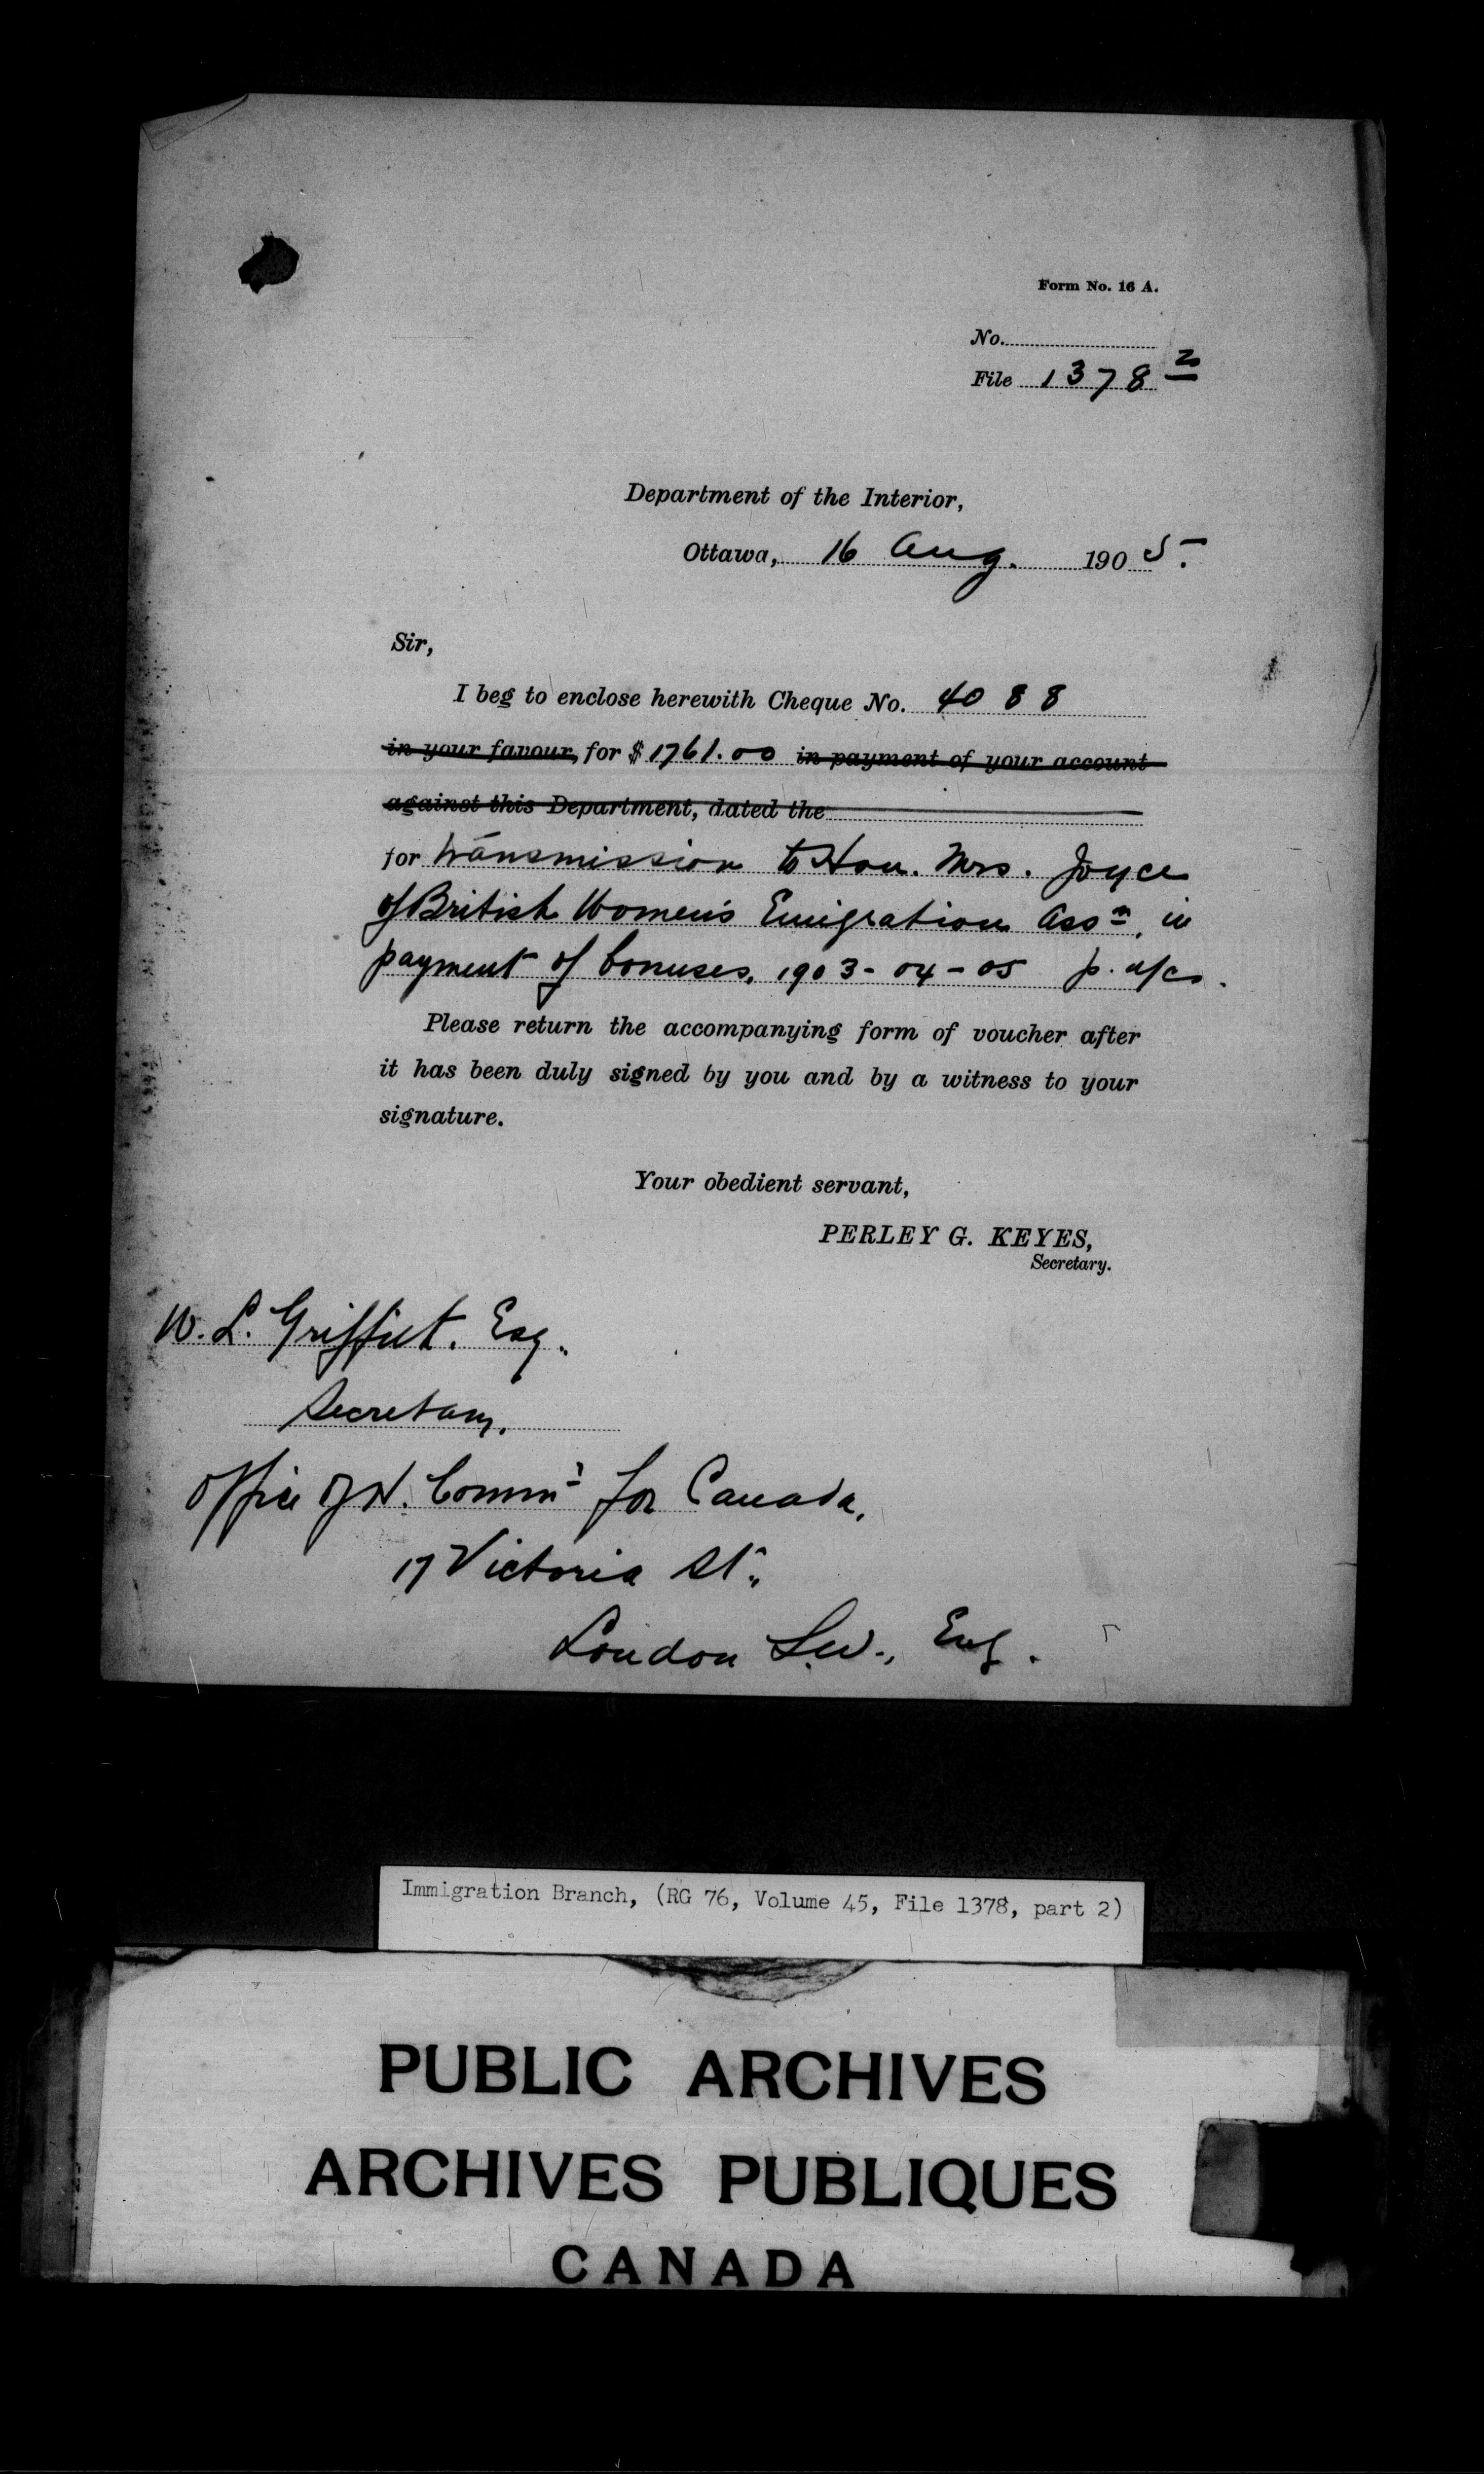 Form No. 16 A.
No.
File 1378 2
Department of the Interior,
Ottawa, 16 Aug. 1905.
Sir,
I beg to enclose herewith Cheque No. 4088
in your favour, for $1761.00 in payment of your account
against this Department, dated the
for transmission to Hon. Mrs. Joyce
of British Women's Emigration Assn, in
payment of bonuses, 1903-04-05 p. a/cs.
Please return the accompanying form of voucher after
it has been duly signed by you and by a witness to your
signature.
Your obedient servant,
PERLEY G. KEYES,
Secretary.
W. L. Griffith, Esq.
Secretary,
Office of H. Commr for Canada,
17 Victoria St.,
London S.W., Eng.
Immigration Branch, (RG 76, Volume 45, File 1378, part 2)
PUBLIC ARCHIVES
ARCHIVES PUBLIQUES
CANADA